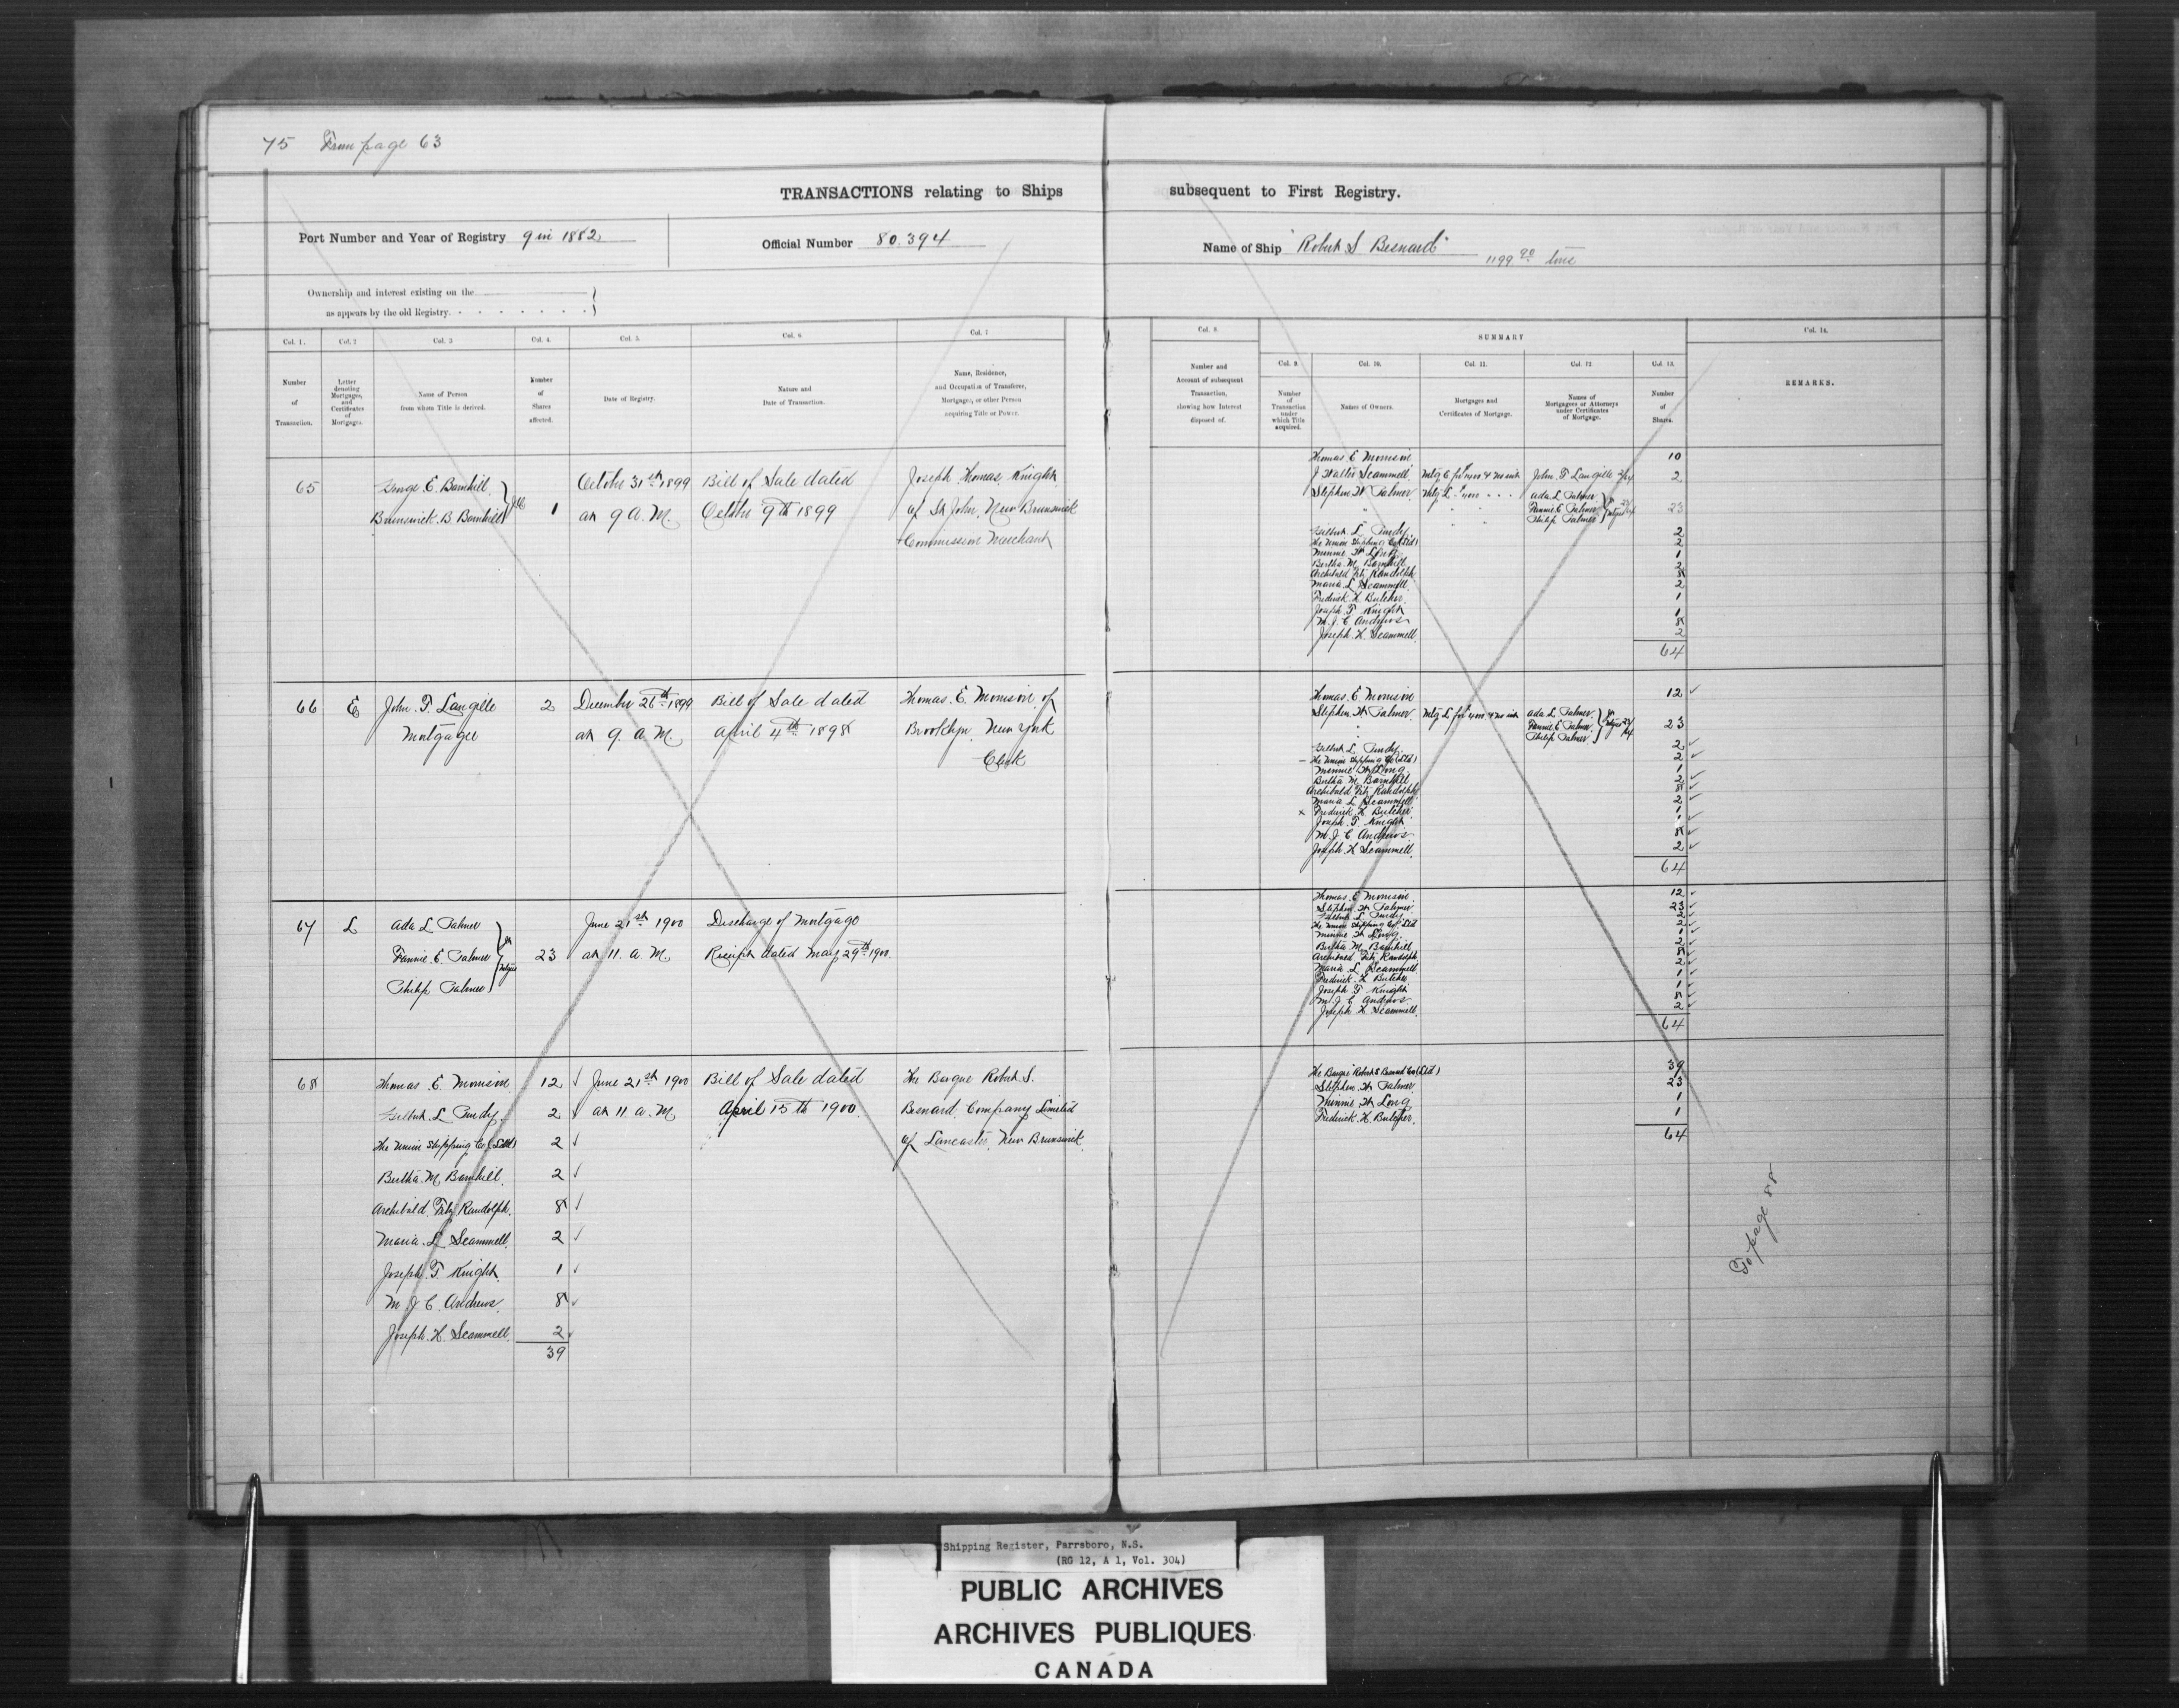 75 From page 63
TRANSACTIONS relating to Ships subsequent to First Registry.
Port Number and Year of Registry 9 in 1882
Official Number 80.394
Name of Ship "Robert S Besnard"
1199 90 tons
Ownership and interest existing on the
as appears by the old Registry.
Col. 1.
Number
of
Transaction.
Col. 2
Letter
denoting
Mortgages,
and
Certificates
of
Mortgages.
Col. 3
Name of Person
from whom Title is derived.
Col. 4.
Number
of
Shares
affected.
Col. 5.
Date of Registry.
Col. 6
Nature and
Date of Transaction.
Col. 7
Name, Residence,
and Occupation of Transferee,
Mortgagee, or other Person
acquiring Title or Power.
Col. 8.
Number and
Account of subsequent
Transaction,
showing how Interest
disposed of.
SUMMARY
Col. 9.
Number
of
Transaction
under
which Title
acquired.
Col. 10.
Names of Owners.
Col. 11.
Mortgages and
Certificates of Mortgage.
Col. 12
Names of
Mortgagees or Attorneys
under Certificates
of Mortgage.
Col. 13.
Number
of
Shares.
Col. 14.
REMARKS.
65
George E. Barnhill
Brunswick. B. Barnhill
1
October 31st 1899
at 9 A. M.
Bill of Sale dated
October 9th 1899
Joseph Thomas Knight
of St John, New Brunswick
Commission Merchant
Thomas E Morrison 10
J Walter Scammell. Mtg E John F Langille 2
Stephen W Palmer Mtg L Ada L Palmer
Fannie E Palmer 23
Philip Palmer
Gilbert L Purdy 2
The Union Shipping Co (Ltd) 2
Minnie W Long 1
Bertha M Barnhill 2
Archibald Fitz Randolph 8
Maria L Scammell 2
Frederick H Butcher 1
Joseph T Knight 1
M. J. C Andrews 8
Joseph H. Scammell 2
64
66 E
John F Langille
Mortgagee
2
December 26th 1899
at 9. A. M.
Bill of Sale dated
April 4th 1898
Thomas. E. Morrison of
Brooklyn, New York
Clerk
Thomas E Morrison 12
Stephen W Palmer Mtg L Ada L Palmer
Fannie E Palmer 23
Philip Palmer
Gilbert L Purdy 2
The Union Shipping Co (Ltd) 2
Minnie W Long 1
Bertha M Barnhill 2
Archibald Fitz Randolph 8
Maria L Scammell 2
Frederick H Butcher 1
Joseph T Knight 1
M. J. C Andrews 8
Joseph H Scammell. 2
64
67 L
Ada L Palmer
Fannie E Palmer
Philip Palmer
23
June 21st 1900
at 11. A. M.
Discharge of Mortgage
Receipt dated May 29th 1900.
Thomas E Morrison 12
Stephen W Palmer 23
Gilbert L Purdy 2
The Union Shipping Co Ltd 2
Minnie W Long 1
Bertha M Barnhill 2
Archibald Fitz Randolph 8
Maria L Scammell 2
Frederick H Butcher 1
Joseph T Knight 1
M J C Andrews 8
Joseph H Scammell. 2
64
68
Thomas E Morrison 12
Gilbert L Purdy 2
The Union Shipping Co (Ltd) 2
Bertha M Barnhill. 2
Archibald Fitz Randolph. 8
Maria L Scammell. 2
Joseph T Knight. 1
M J C Andrews. 8
Joseph. H. Scammell. 2
39
June 21st 1900
at 11. A. M
Bill of Sale dated
April 15th 1900
The Barque Robert S.
Besnard Company Limited
of Lancaster New Brunswick.
The Barque Robert S Besnard Co (Ltd) 39
Stephen W Palmer 23
Minnie W Long 1
Frederick H Butcher. 1
64
To page 88
Shipping Register, Parrsboro, N.S.
(RG 12, A 1, Vol. 304)
PUBLIC ARCHIVES
ARCHIVES PUBLIQUES
CANADA